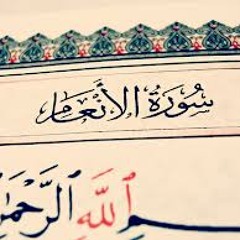 سُورَةُ الأَنْعَامِ
ٱللَّهِ ٱلرَّحْمَٰنِ